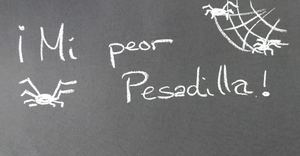 ¡Mi peor
Pesadilla!